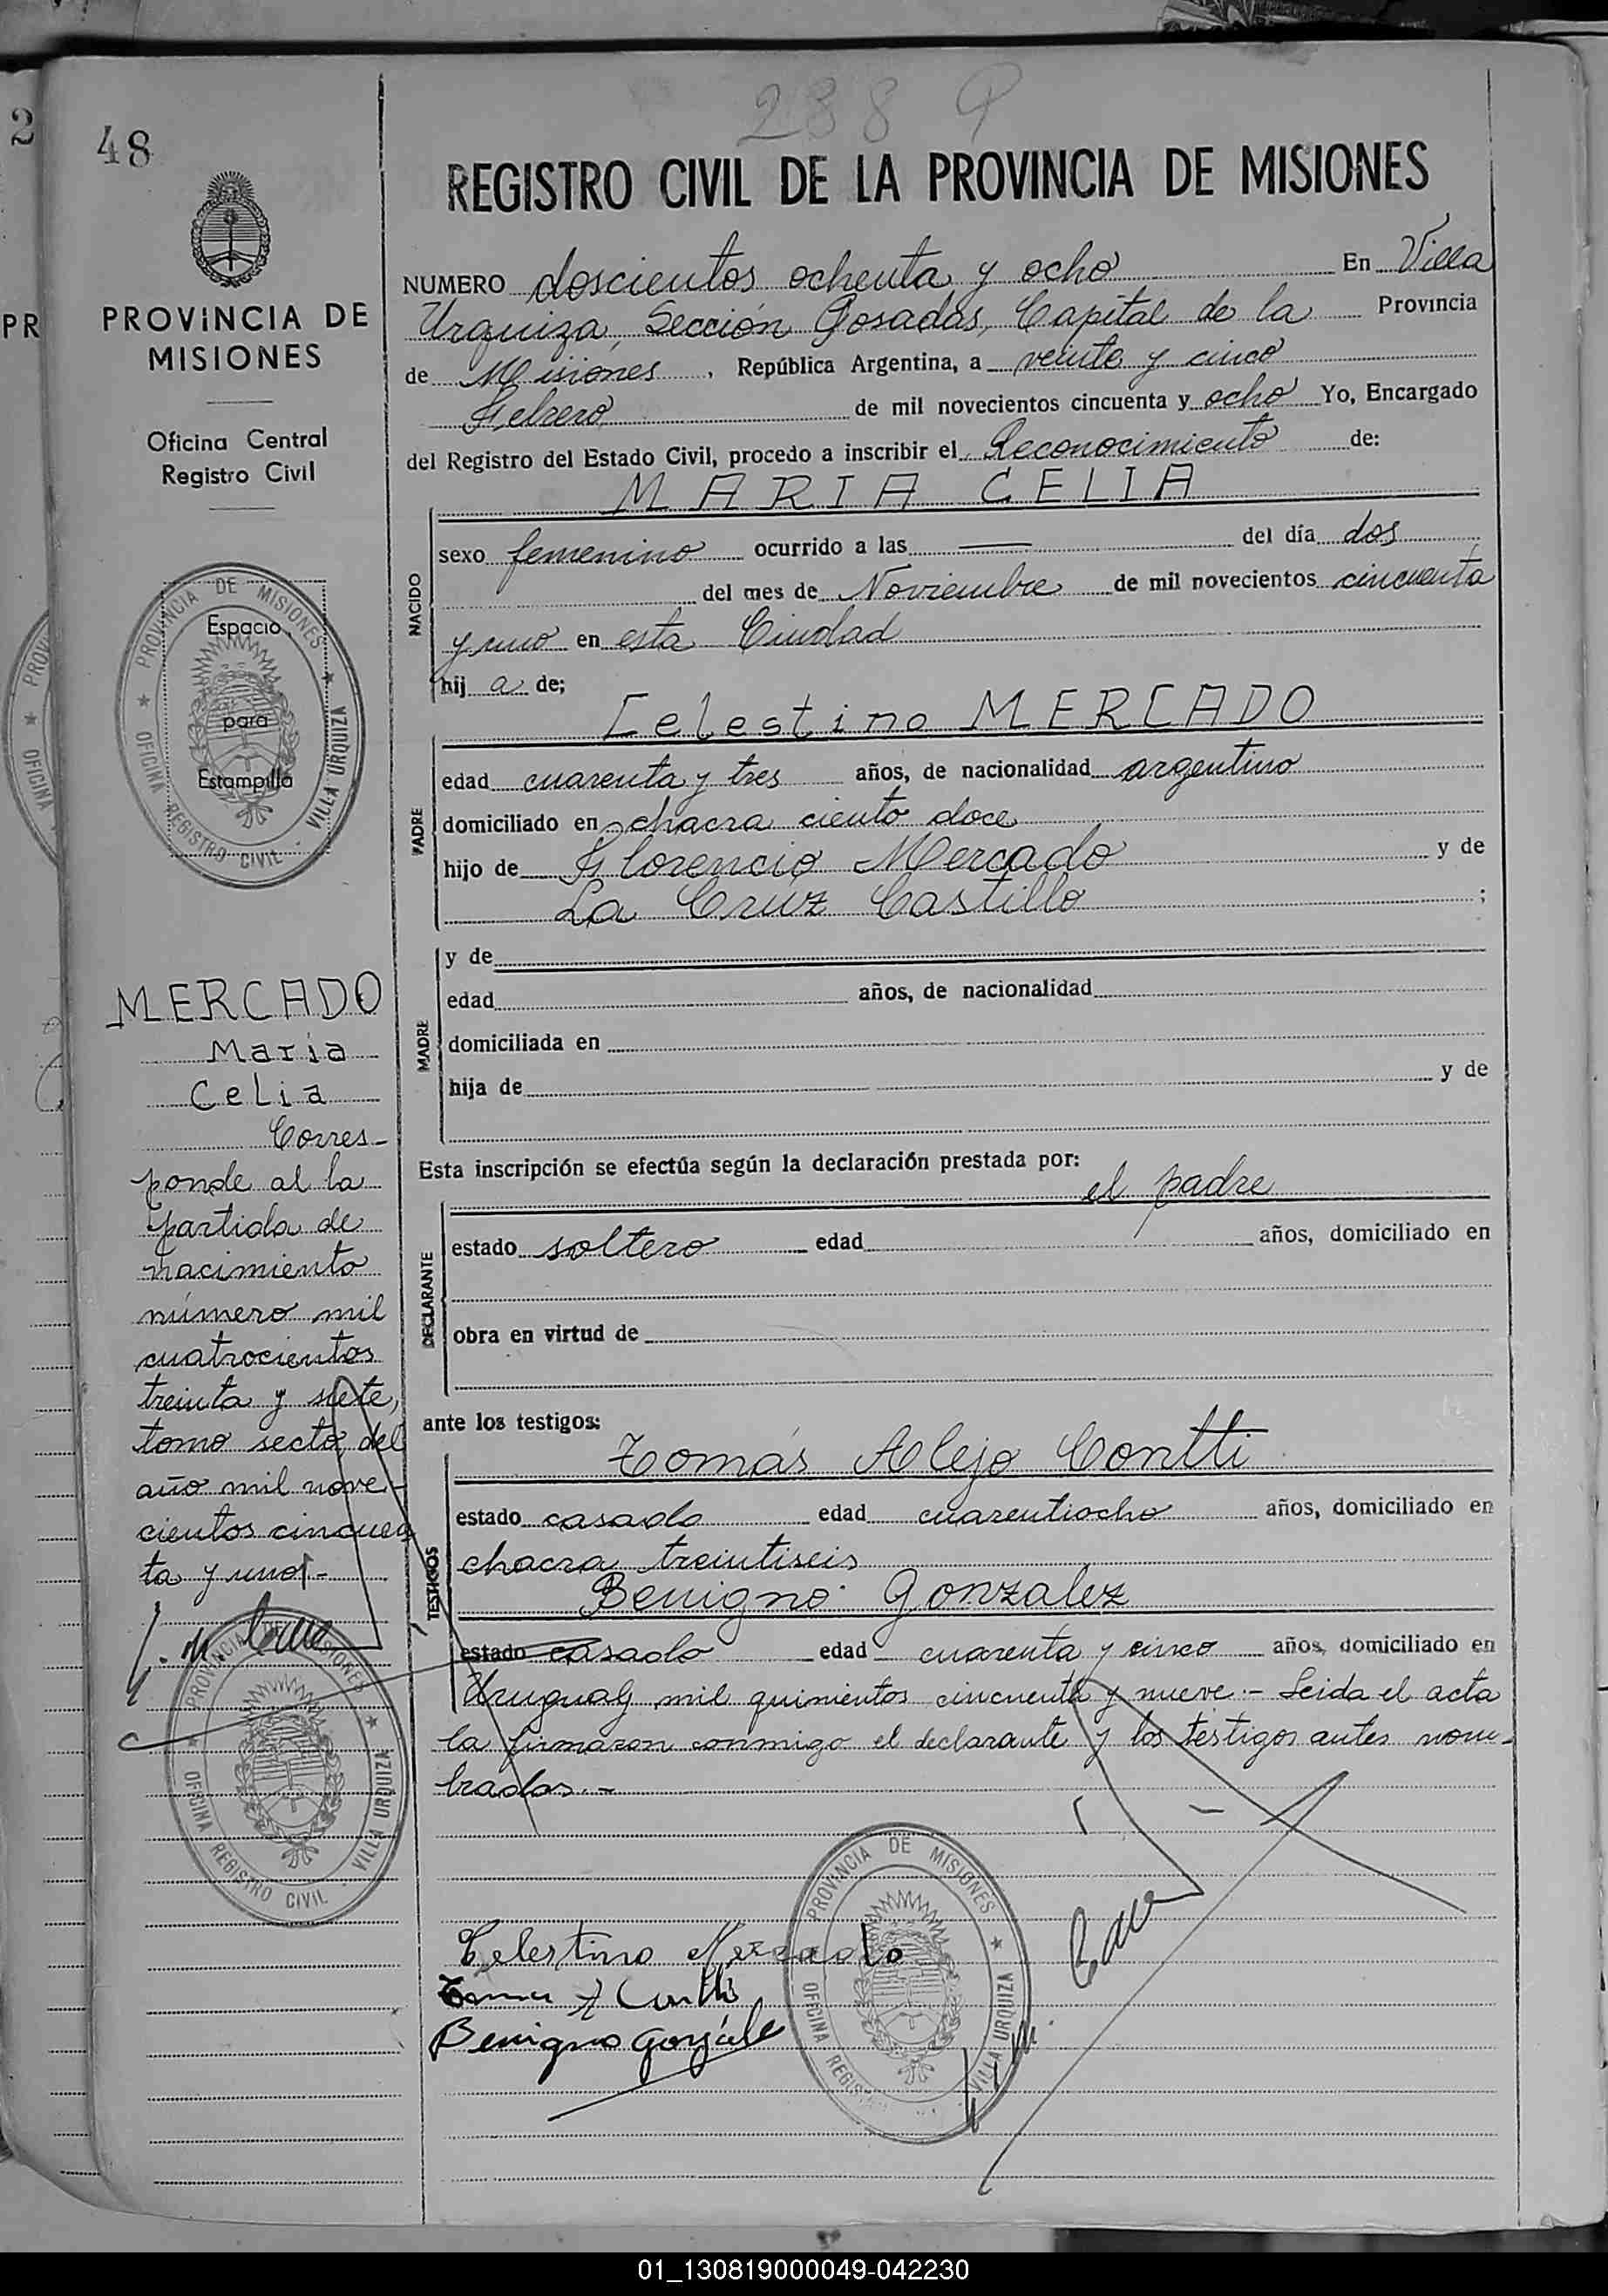 2
48
288 P
REGISTRO CIVIL DE LA PROVINCIA DE MISIONES
PR
PROVINCIA DE
MISIONES
Oficina Central
Registro Civil
PROVINCIA DE MISIONES
OFICINA REGISTRO CIVIL - VILLA URQUIZA
Espacio
para
Estampilla
PROV
OFICINA
MERCADO
Maria
Celia
Corres-
ponde al la
partida de
nacimiento
número mil
cuatrocientos
treinta y siete,
tomo secto del
año mil nove-
cientos cincuen
ta y uno.-
PROVINCIA DE MISIONES
OFICINA REGISTRO CIVIL - VILLA URQUIZA
NUMERO doscientos ochenta y ocho En Villa
Urquiza, Sección Posadas, Capital de la Provincia
de Misiones, República Argentina, a veinte y cinco
Febrero de mil novecientos cincuenta y ocho Yo, Encargado
del Registro del Estado Civil, procedo a inscribir el Reconocimiento de:
MARIA CELIA
NACIDO
sexo femenino ocurrido a las — del día dos
del mes de Noviembre de mil novecientos cincuenta
y uno en esta Ciudad
hij a de;
Celestino MERCADO
PADRE
edad cuarenta y tres años, de nacionalidad argentino
domiciliado en chacra ciento doce
hijo de Florencio Mercado y de
La Cruz Castillo ;
MADRE
y de
edad años, de nacionalidad
domiciliada en
hija de y de
Esta inscripción se efectúa según la declaración prestada por:
el padre
DECLARANTE
estado soltero edad años, domiciliado en
obra en virtud de
ante los testigos:
Tomás Alejo Contti
TESTIGOS
estado casado edad cuarentiocho años, domiciliado en
chacra treintiseis
Benigno Gonzalez
estado casado edad cuarenta y cinco años, domiciliado en
Uruguay mil quinientos cincuenta y nueve.- Leida el acta
la firmaron conmigo el declarante y los testigos antes nom-
brados.-
PROVINCIA DE MISIONES
OFICINA REGIS VILLA URQUIZA
Celestino Mercado
Benigno Gonzále
01_130819000049-042230